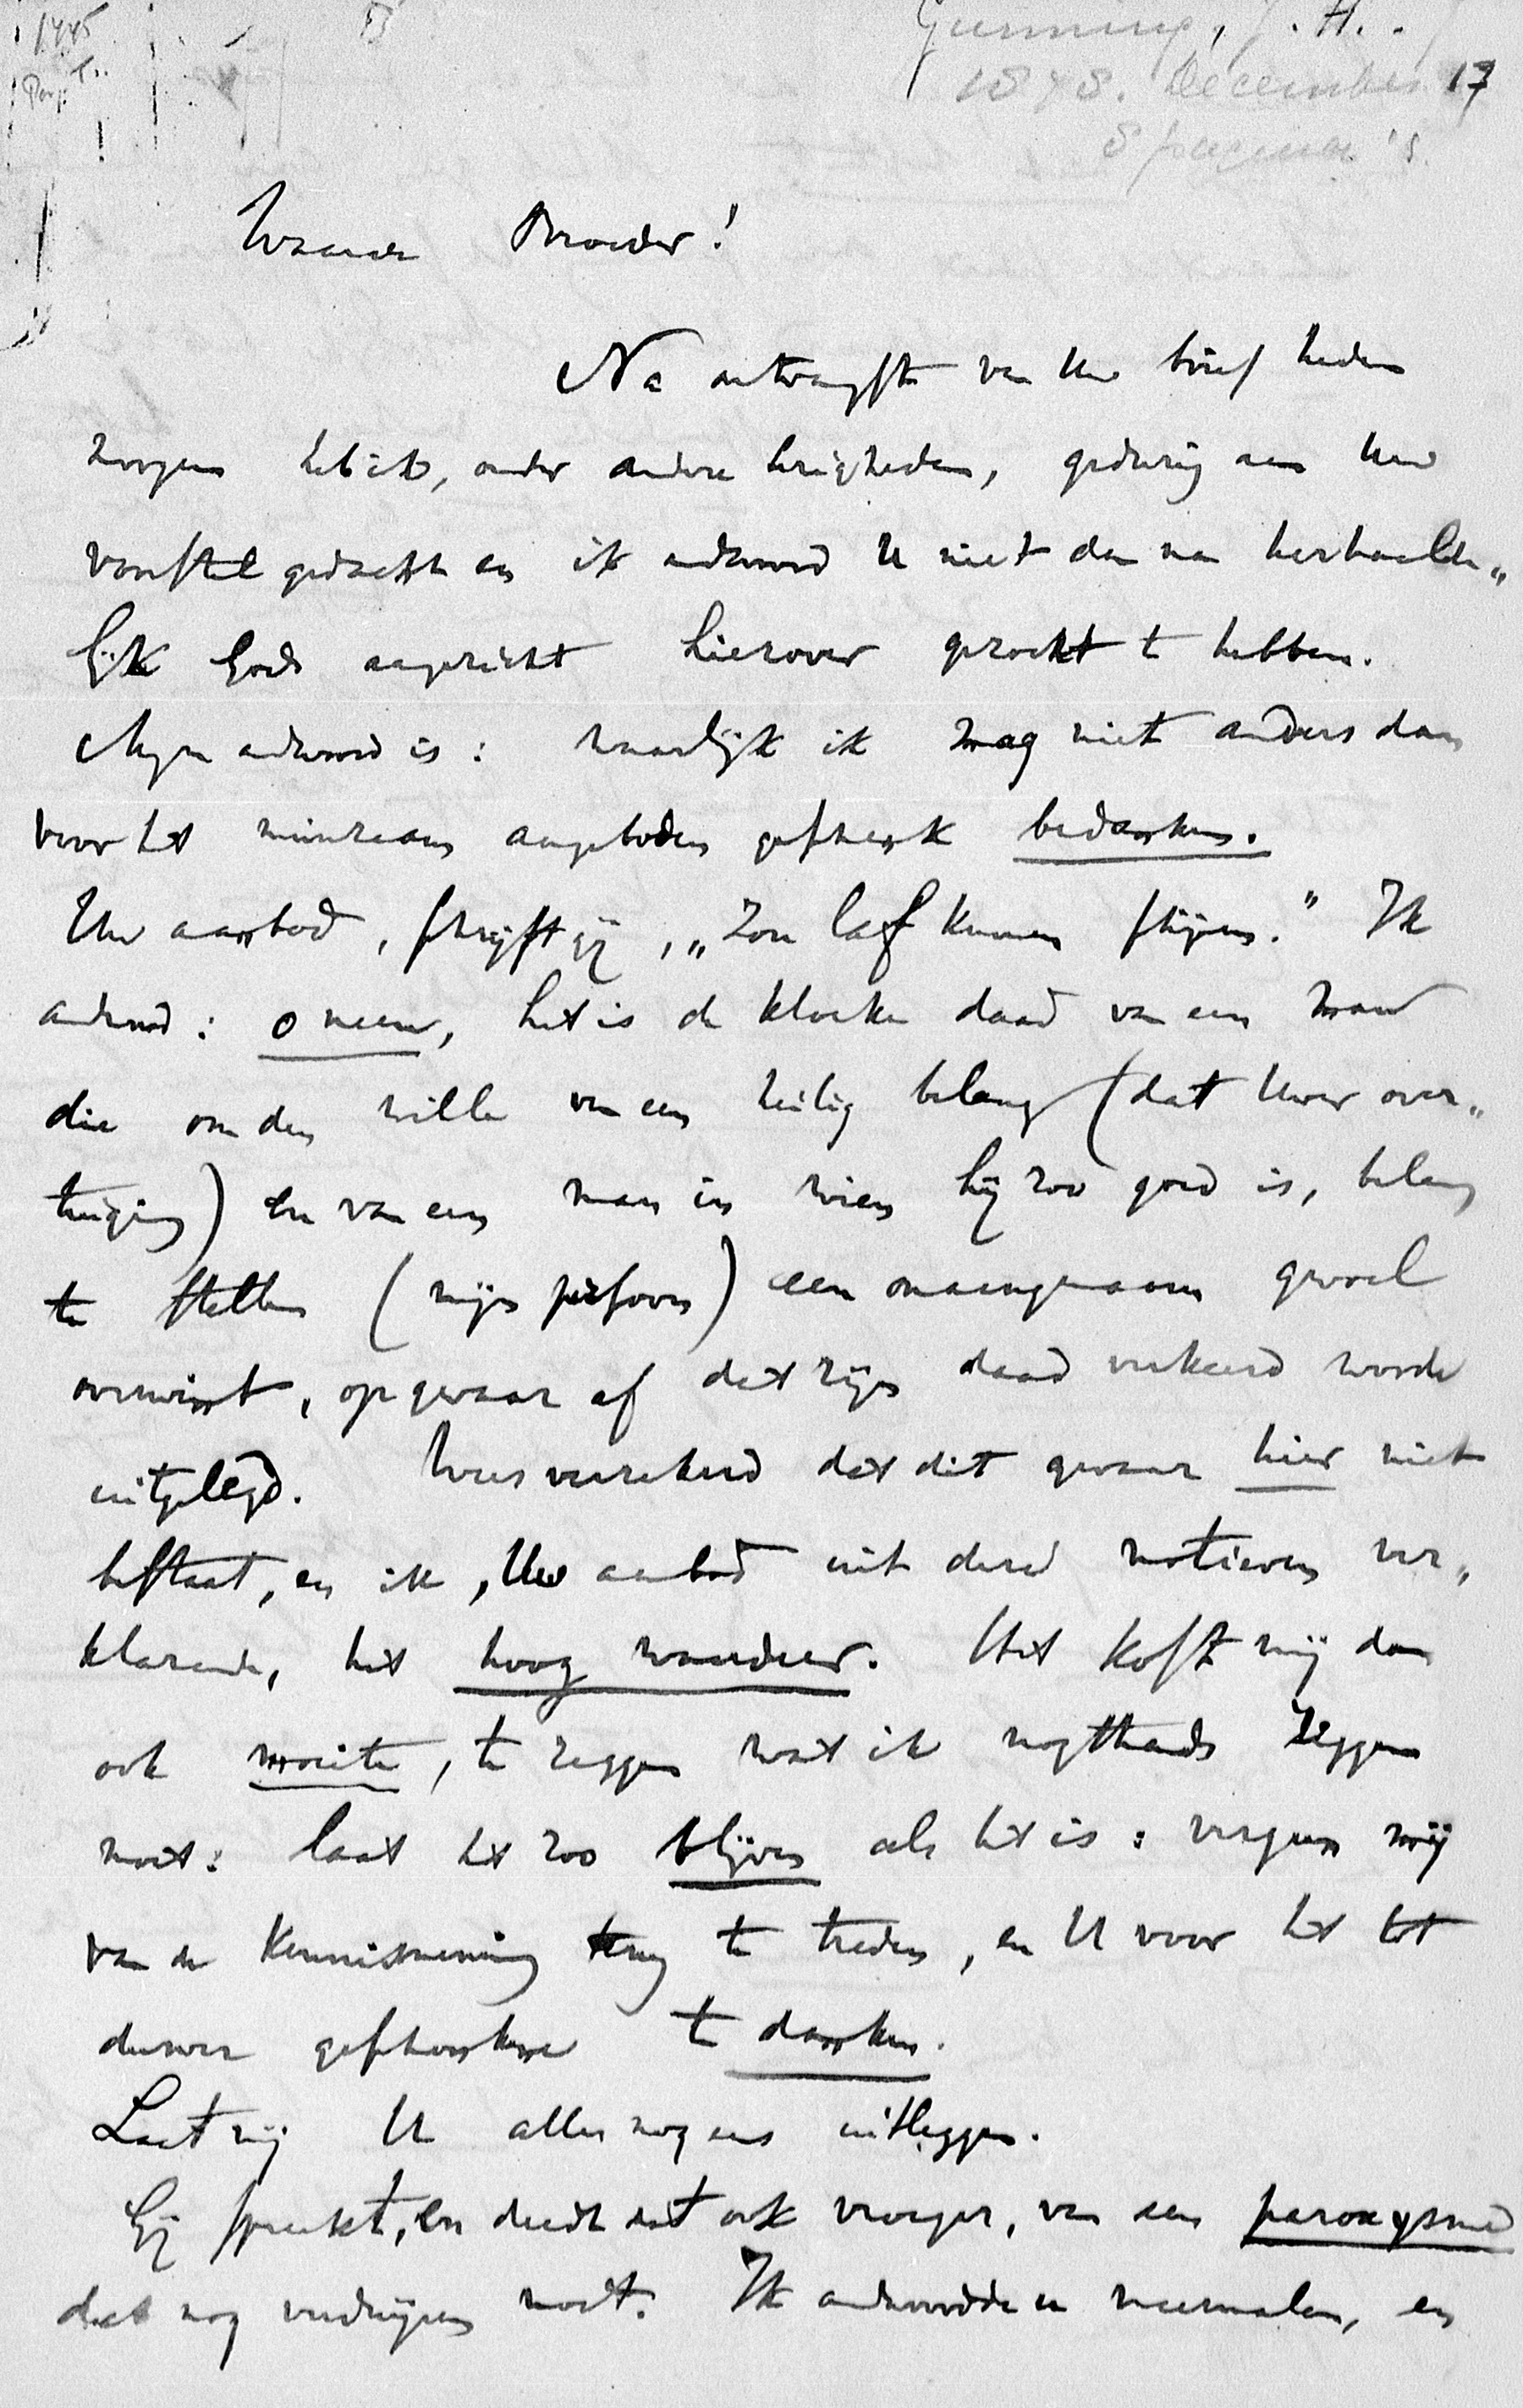 Gunning, J. H.
1878. December 17
8 pagina's.
Waarde Broeder!
Na ontvangst van Uw brief heden
morgen heb ik, onder andere bezigheden, gedurig aan Uw
voorstel gedacht en ik andwoord U niet dan na herhaalde„
lijk Gods aangezicht hierover gezocht te hebben.
Mijn andwoord is: waarlijk ik mag niet anders dan
voor het minzaam aangeboden geschenk bedanken.
Uw aanbod, schrijft gij, „zou laf kunnen schijnen." Ik
andwoord: o neen, het is de kloeke daad van een man
die om den wille van een heilig belang (dat Uwer over„
tuiging) en van een man in wien hij zoo goed is, belang
te stellen (mijn persoon) een onaangenaam gevoel
overwint, op gevaar af dat zijn daad verkeerd worde
uitgelegd. Wees verzekerd dat dit gevaar hier niet
bestaat, en ik, Uw aanbod uit deze motieven ver„
klarende, het hoog waardeer. Het kost mij dan
ook moeite, te zeggen wat ik nogthands zeggen
moet: laat het zoo blijven als het is: vergun mij
van de kennisneming terug te treden, en U voor het tot
dusver geschonkene te danken.
Laat mij U alles nog eens uitleggen.
Gij spreekt, en deedt dat ook vroeger, van een paroxysme
dat nog verdwijnen moet. Ik andwoordde u meermalen, en